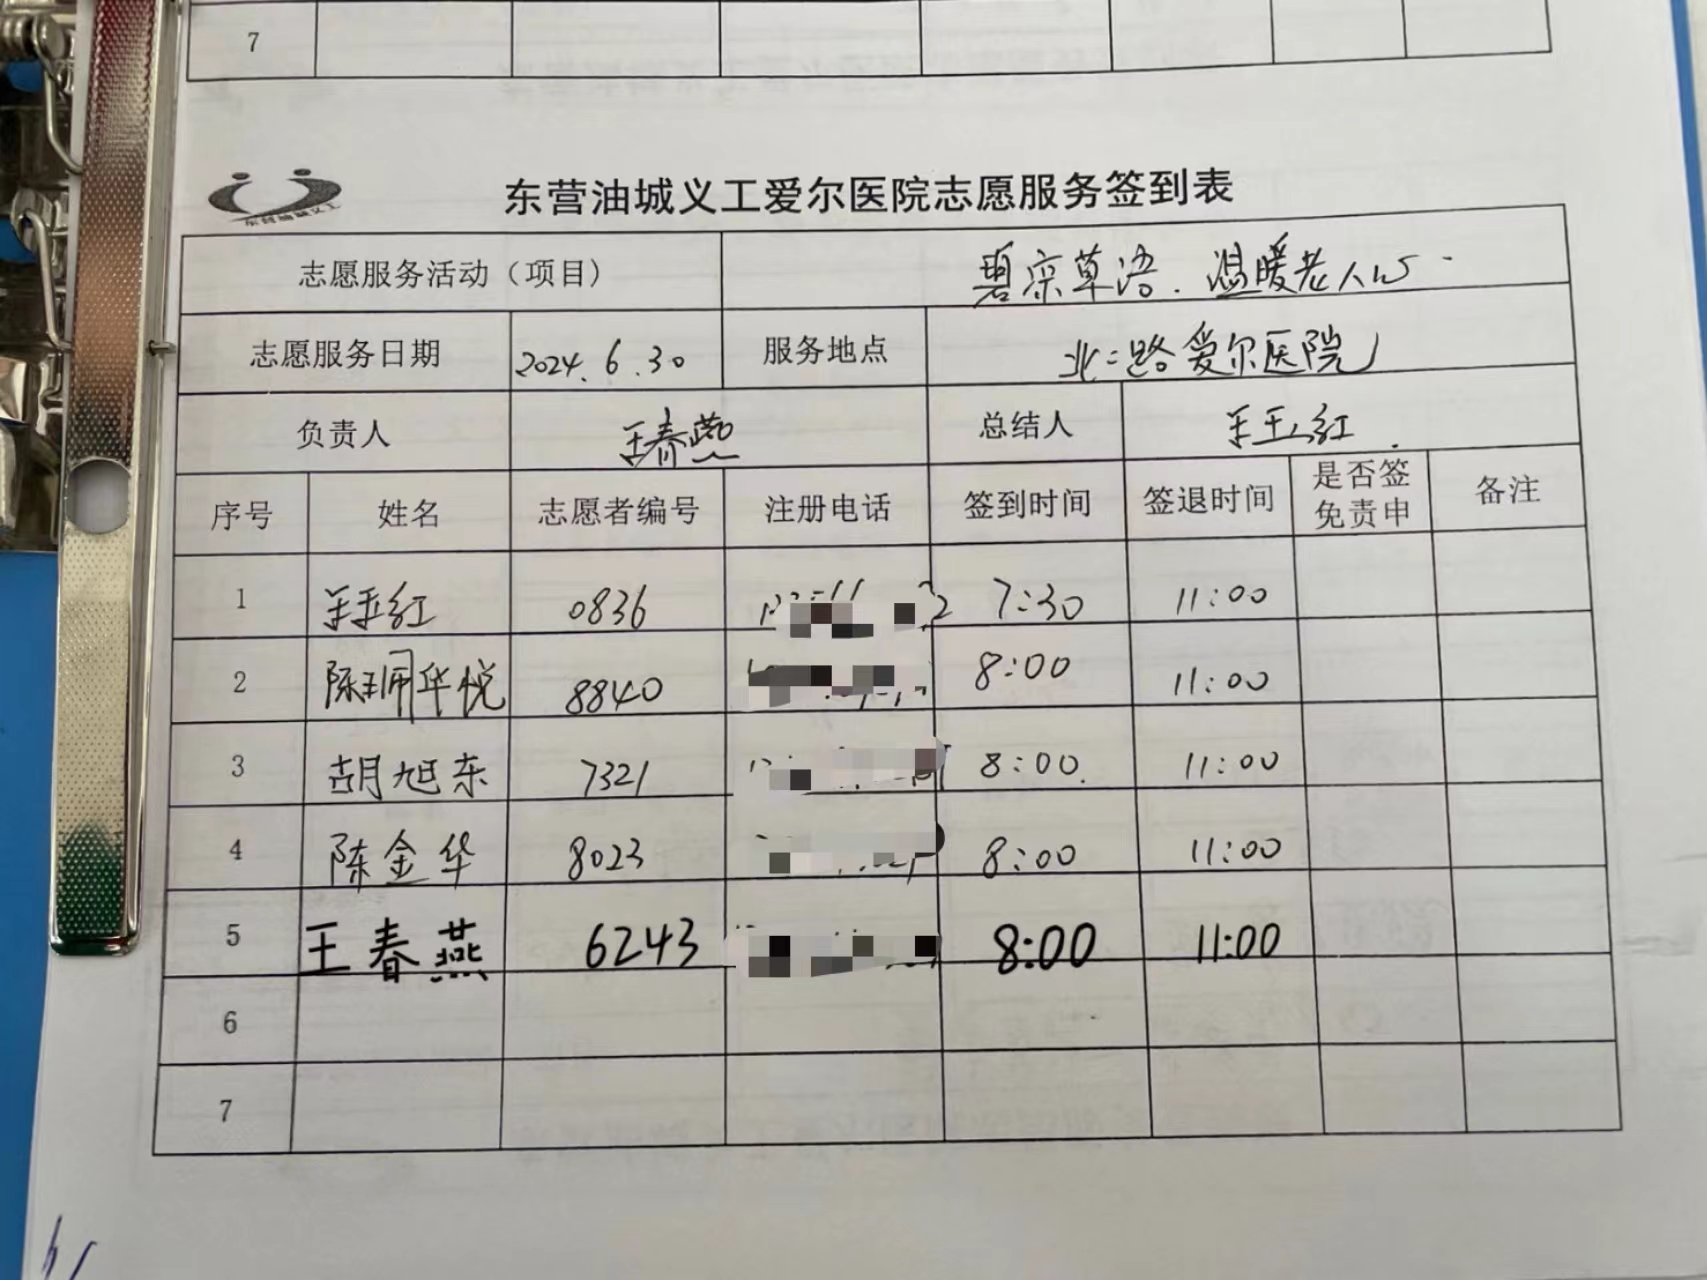 7
东营油城义工
东营油城义工爱尔医院志愿服务签到表
志愿服务活动（项目） 碧深草语．温暖老人心
志愿服务日期 2024.6.30 服务地点 北二路爱尔医院
负责人 王春燕 总结人 王玉红
序号 姓名 志愿者编号 注册电话 签到时间 签退时间 是否签免责申 备注
1 0836 7:30 11:00
2 8840 8:00 11:00
3 胡旭东 7321 8:00 11:00
4 陈金华 8023 8:00 11:00
5 王春燕 6243 8:00 11:00
6
7